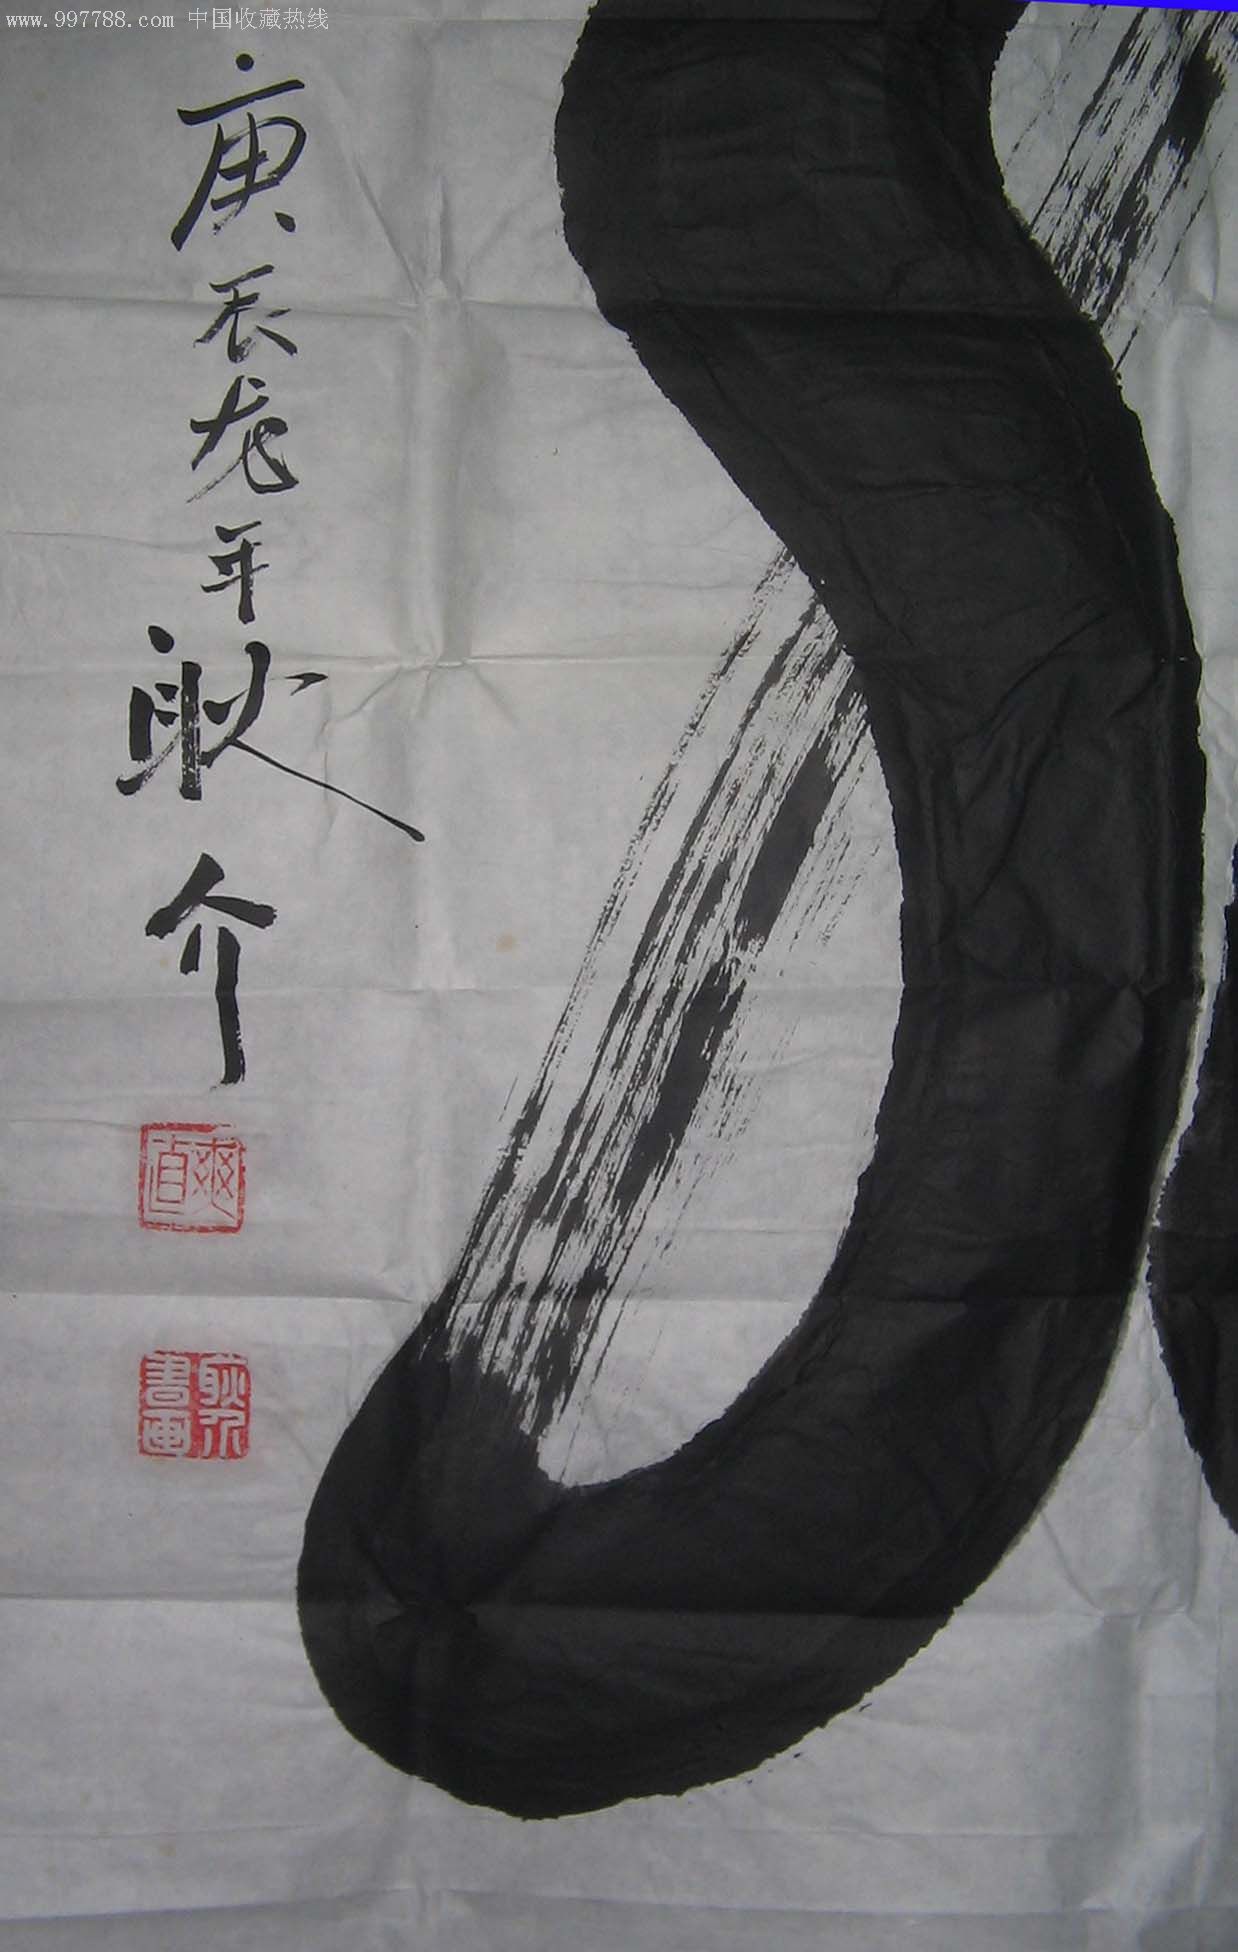 www.997788.com 中国收藏热线
庚辰龙年耿介
爽直
耿介書画